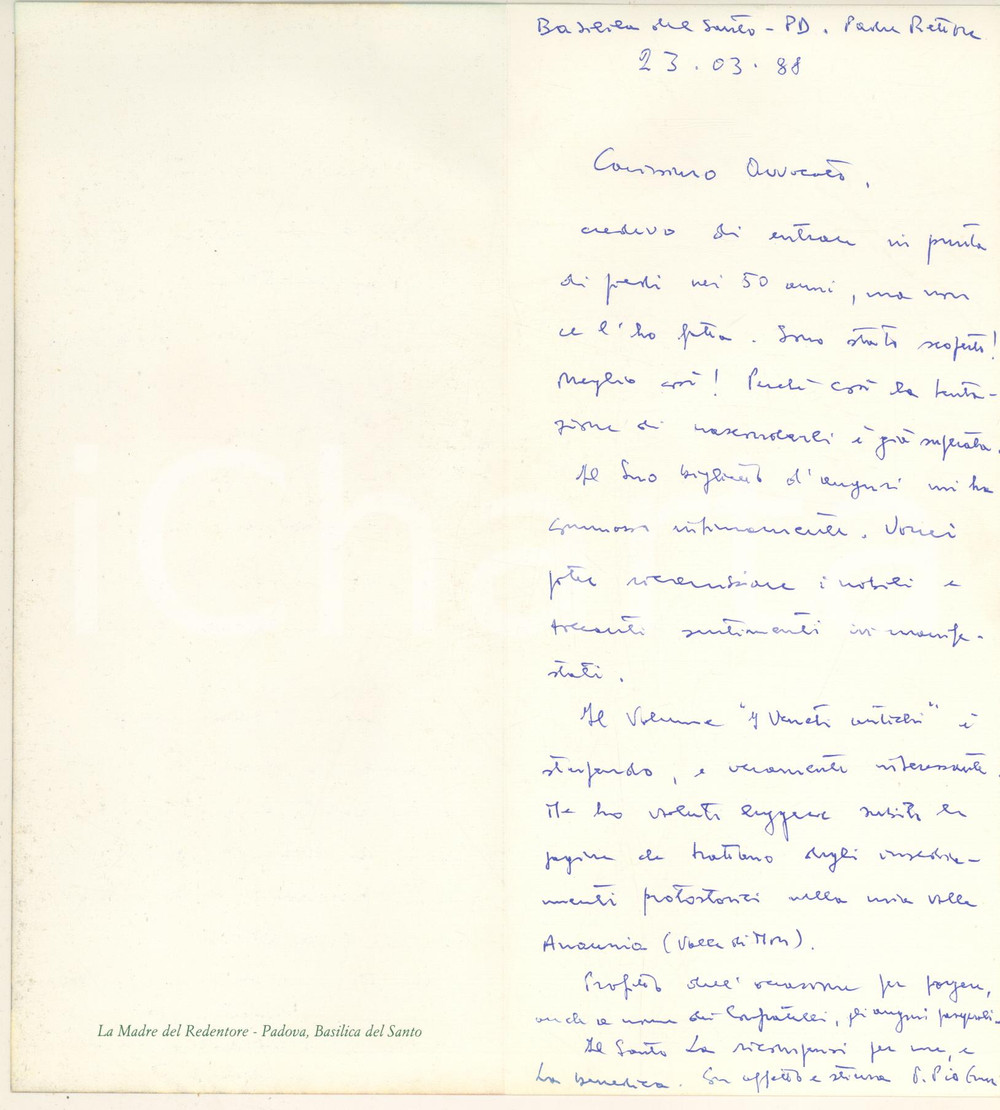 Basilica del Santo - PD. Padre Rettore
23.03.88
Carissimo Avvocato,
credevo di entrare in punta
di piedi nei 50 anni, ma non
ce l'ho fatta. Sono stato scoperto!
Meglio così! Perché così la tenta-
zione di nasconderli è già superata.
Il Suo biglietto d'auguri mi ha
commosso intimamente. Vorrei
poter ricambiare i nobili e
toccanti sentimenti ivi manife-
stati.
Il Volume "I Veneti antichi" è
stupendo, e veramente interessante.
Me ho voluto leggere subito le
pagine che trattano degli insedia-
menti protostorici nella mia valle
Anaunia (Valle di Non).
Profitto dell'occasione per porgere,
anche a nome dei Confratelli, gli auguri pasquali.
Il Santo La ricompensi per me, e
La benedica. Con affetto e stima P. Pio
La Madre del Redentore - Padova, Basilica del Santo
iCharta